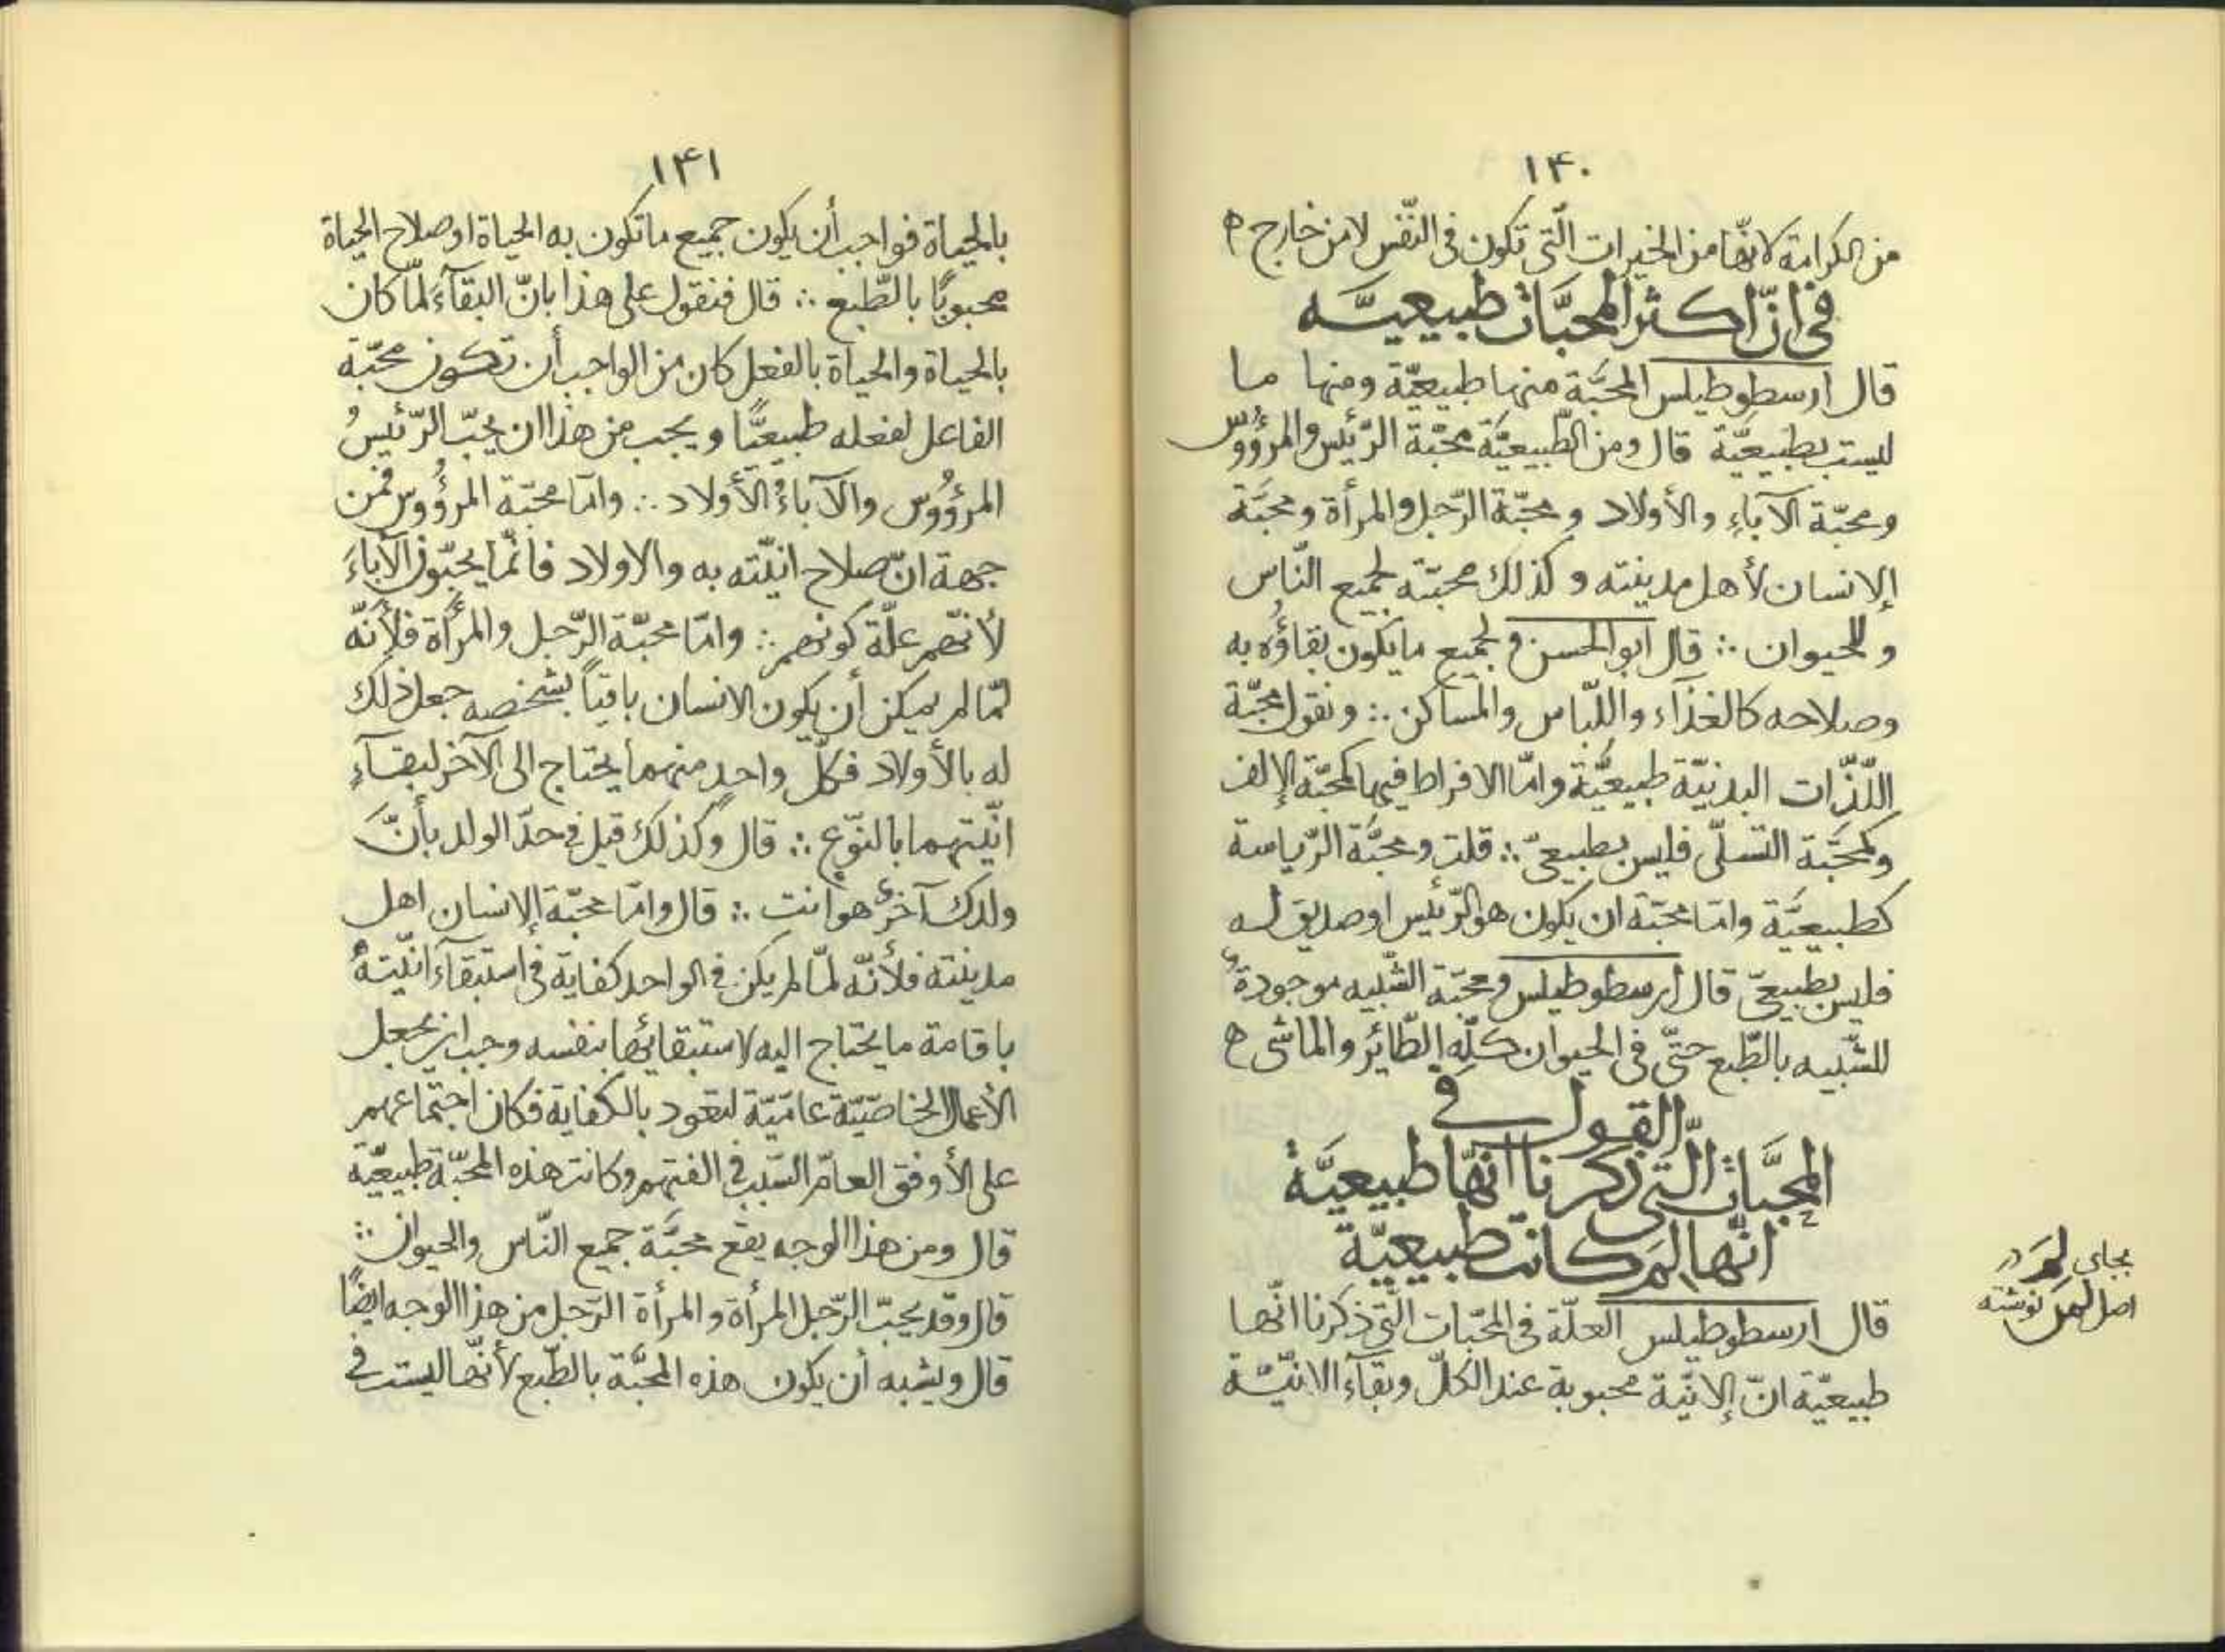 ١۴٠
من الكرامة لانّها من الخيرات الّتى تكون فى النّفس لا من خارج ه
فى انّ اكثر المحبَّات طبيعيَّه
قال ارسطوطيلس المحبَّة منها طبيعيّة ومنها ما
ليست بطبيعيَّة قال ومن الطّبيعيَّة محبّة الرّئيس والمرؤُوسّ
ومحبّة الآباءِ والأولاد ومحبّة الرّجل والمرأة ومحبَّة
الإنسان لأهل مدينته وكذلك محبّته لجميع النّاس
وللحيوان ∴ قال ابو الحسن ولجميع ما يكون بقاؤُه به
وصلاحه كالغذآء واللّباس والمساكن ∴ ونقول محبّة
اللّذّات البدنيّة طبيعيَّة وامّا الافراط فيها كمحبّة الإلف
وكمحبَّة التسلّى فليس بطبيعىّ ∴ قلت ومحبَّة الرّياسة
كطبيعيَّة وامّا محبّة ان يكون هو الرّئيس او صديق له
فليس بطبيعىّ قال ارسطوطيلس ومحبّة الشّبيه موجودةٌ
للشّبيه بالطّبع حتّى فى الحيوان كلّه الطّائر والماشى ه
القول فى
المحبَّات الّتى ذكرنا انّها طبيعيَّةٌ
انّها لِمَ كانت طبيعيّة
قال ارسطوطيلس العلّة فى المحبّات الّتى ذكرنا انّها
طبيعيّة انّ الإنيّة محبوبة عند الكلّ وبقآء الانيّة
بجاى لِمَ در
اصل لهل نوشته
١۴١
بالحياة فواجب أن يكون جميع ما تكون به الحياة او صلاح الحياة
محبوبًا بالطّبع ∴ قال فنقول على هذا بانّ البقآءَ لمّا كان
بالحياة والحياة بالفعل كان من الواجب أن تكون محبّة
الفاعل لفعله طبيعيًّا ويجب من هذا ان يحبّ الرّئيسُ
المرؤُوسَ والآباءُ الأولاد ∴ وامّا محبّة المرؤُوس فمن
جهة انّ صلاح انيّته به والاولاد فانّما يحبّون الآباءَ
لأنّهم علّة كونهم ∴ وامّا محبّة الرّجل والمرأة فلأنّه
لمّا لم يمكن أن يكون الانسان باقياً بشخصه جعل ذلك
له بالأولاد فكلّ واحد منهما يحتاج الى الآخر لبقآءِ
انّيّتهما بالنوّع ∴ قال وكذلك قيل فى حدّ الولد بأنّ
ولدك آخرُ هو انت ∴ قال وامّا محبّة الإنسان اهل
مدينته فلأنّه لمّا لم يكن فى الواحد كفاية فى استبقآء انّيّتهُ
باقامة ما يحتاج اليه لاستبقائها بنفسه وجب ان يجعل
الأعمال الخاصّيّة عامّيّة لتعود بالكفاية فكان اجتماعهم
على الأوفق العامّ السّبب فى الفتهم وكانت هذه المحبّة طبيعيّة
قال ومن هذا الوجه يقع محبَّة جميع النّاس والحيوان ∴
قال وقد يحبّ الرّجل المرأة والمرأة الرّجل من هذا الوجه ايضًا
قال ويشبه أن يكون هذه المحبَّة بالطّبع لأنّها ليست فى